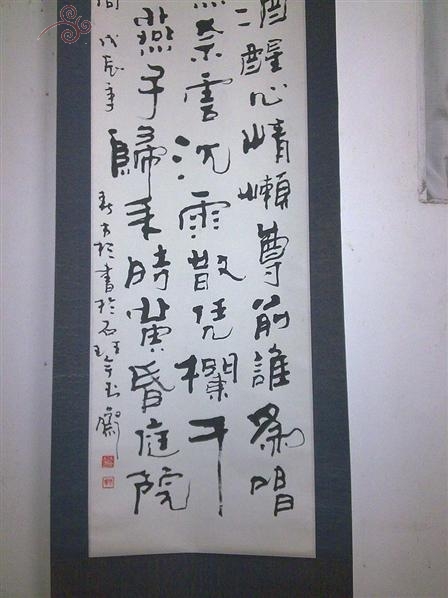 酒醒心情懶尊前誰為唱
無奈雲沉雨散凭欄干
燕子歸来時黄昏庭院
戊辰年
書於石